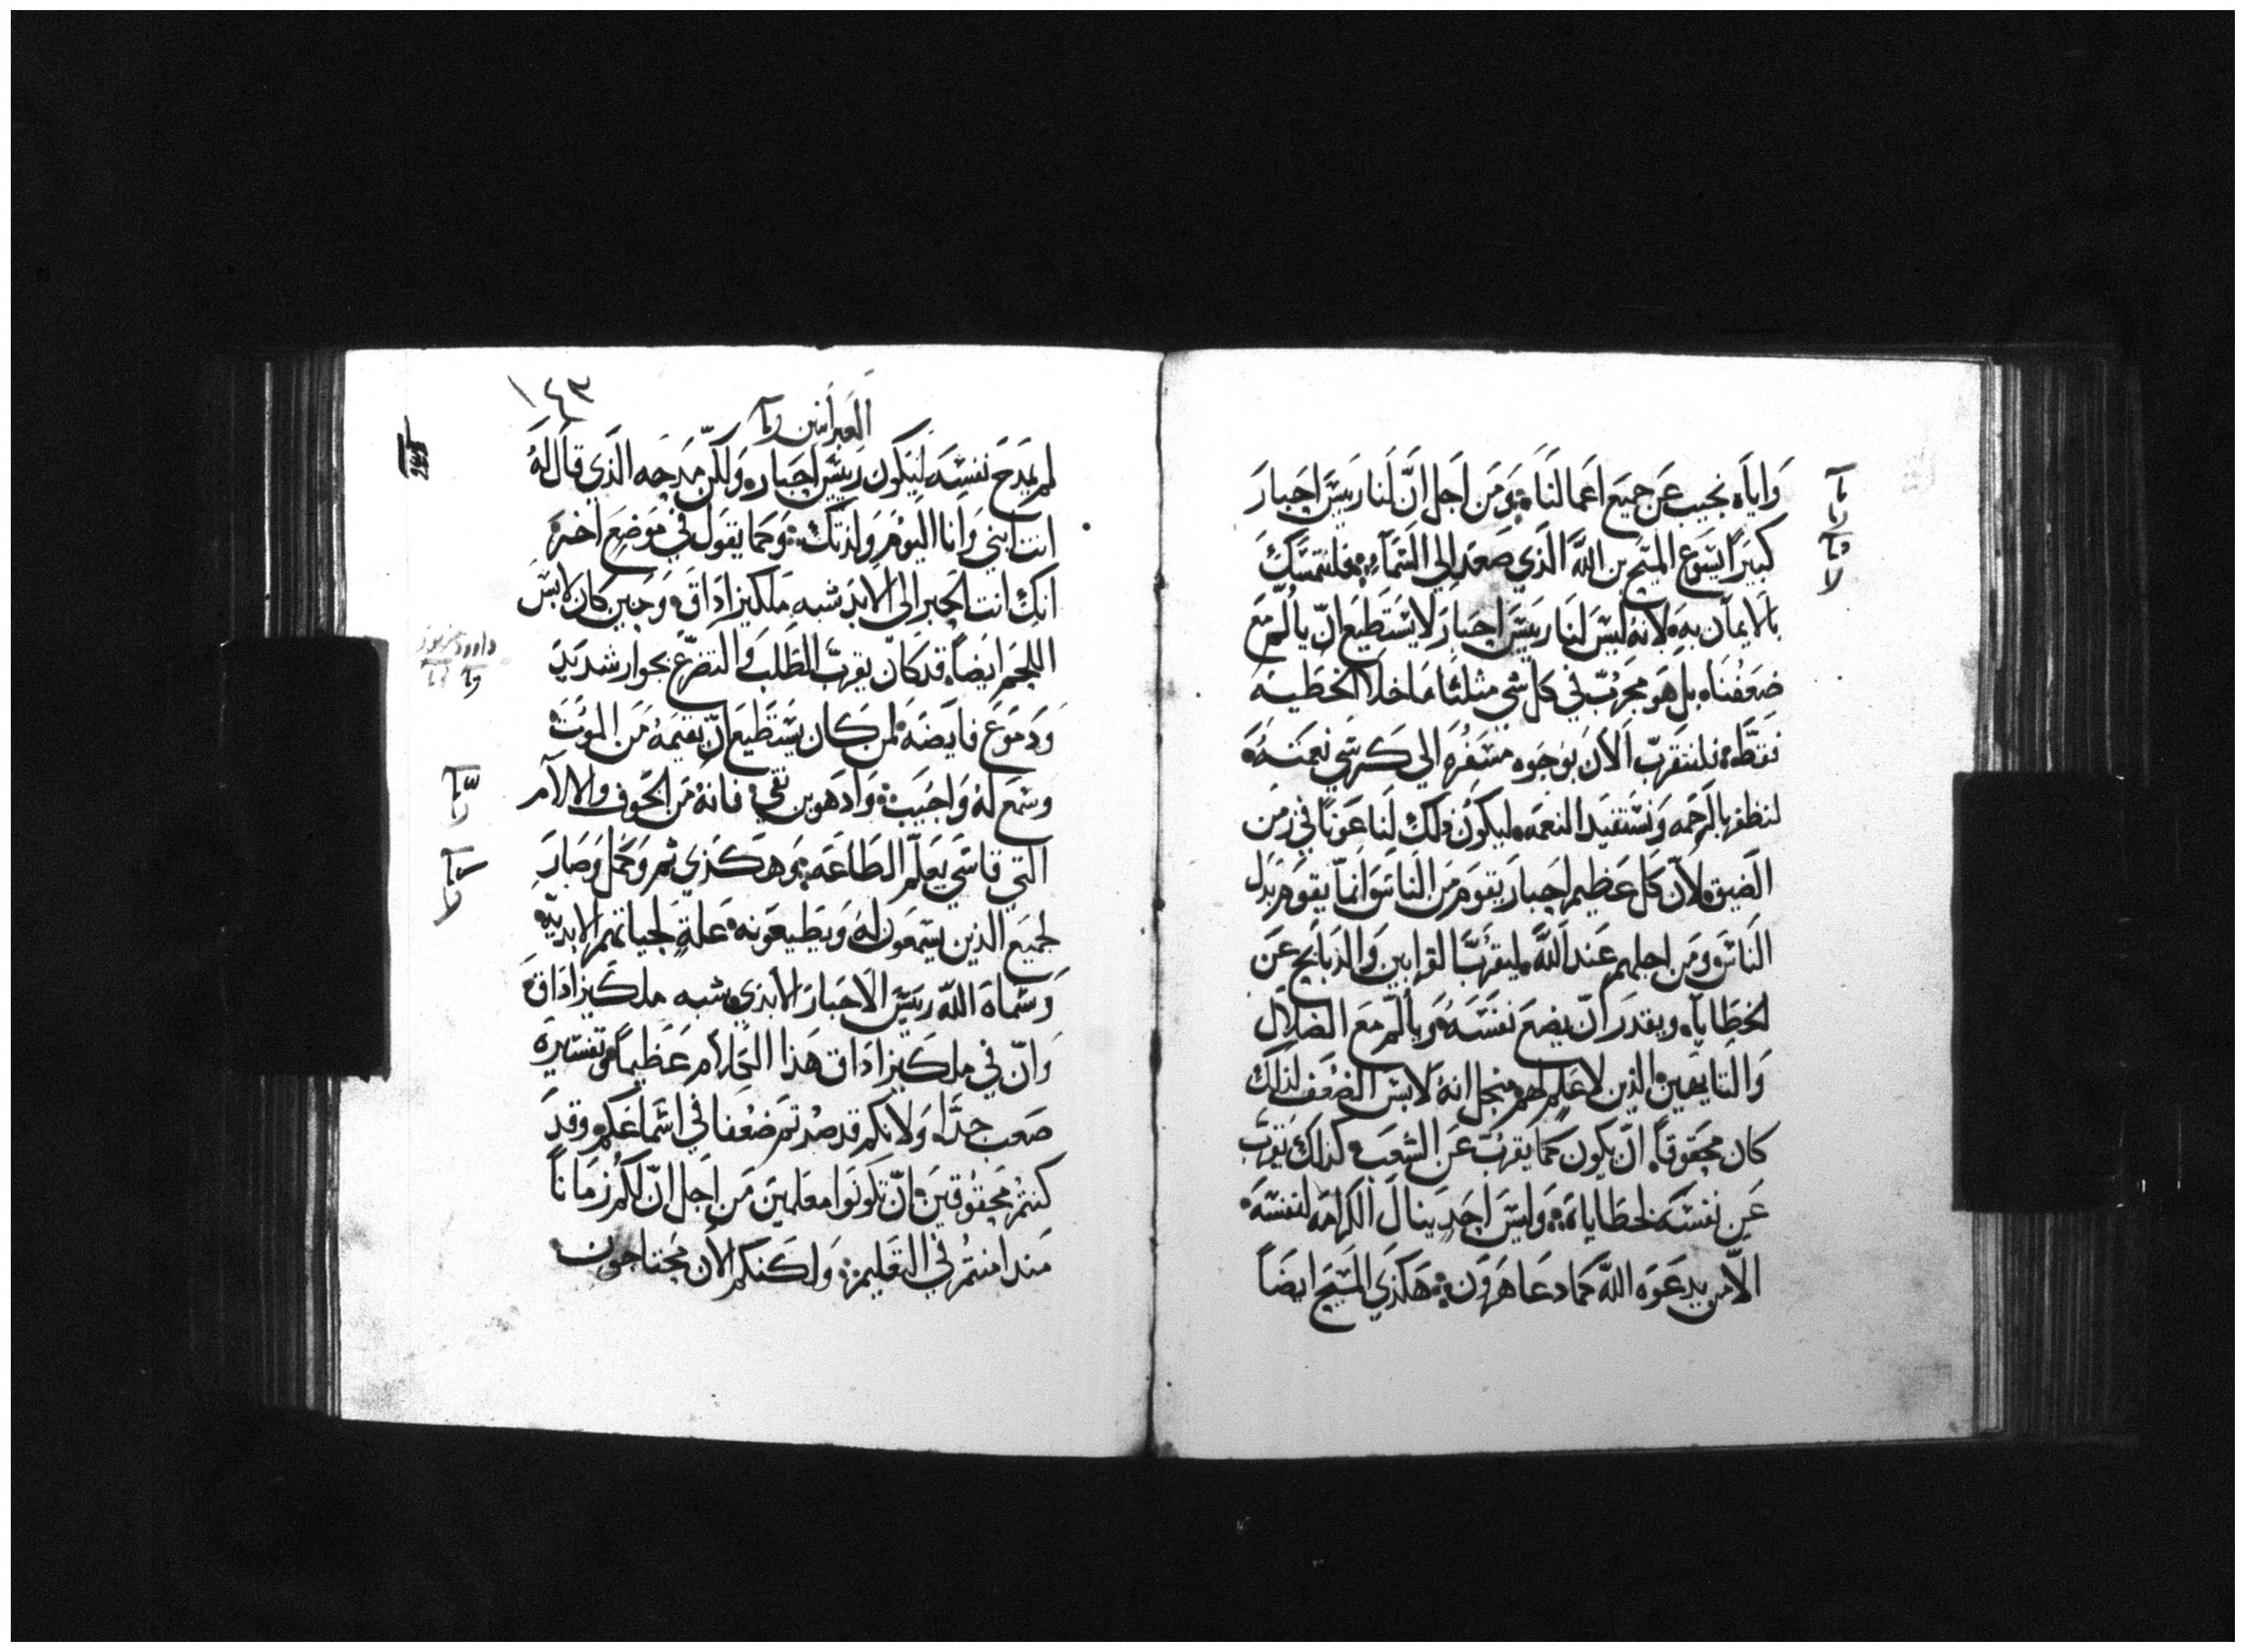 وَاياه نجيب عَن جميع اعمالنَا ۞ وَمَن اجَل انّ لَنا ريسَ احبارَ
كبيَراً ايسَوع المسَيح بن اللّه الَذي صَعَد الي السَمآء ۞ فلنتمسَك
بالايمان به لانه ليسَ لنَا ريسَ احبارَ لايسَتطيَع انّ يألَم مَع
ضعَفنَا بل هَو مجَربّ في كل شي مثلنَا مَا خلا الخطَيـة
فقطَ فلنتقربّ الان بوَجوه مسَفرَه الي كَرسَي نعمَته
لنظفر بالرَحمَه وَنسَتفيَد النعمَه ليكوَن ذلك لَنا عَونَا في زمَن
الضيق لان كل عَظيم احبارَ يقوَم مَن الناسَ وَانمَا يقوَم بدَل
الناسَ ومَن اجلهم عَند اللّه ليقربّ القرابين وَالذبايح عَن
الخطَايا ويقدرَ انّ يضعَ نفسَه وَيألم مَع الضلال
وَالتايهين الذين لا علم لهم منجل انه لابسَ الضعَف لذلك
كان محقوقاً انّ يكون كما يقربّ عَن الشعَب كذلك يقربّ
عَن نفسَه لخطَاياه ۞ وَليسَ احَد ينال الكرامَه لنفسَه
الاّ من يدعَوه اللّه كما دعَا هَروَن ۞ هَكذي المسَيح ايضَاً
١٤٣
العبرانيين
لم يمدَح نفسَه ليكَون ريسَ احبار وَلكن مَدحَه الَذي قال لهُ
انت ابني وَانا اليوَم وَلدتك ۞ وَكما يقوَل في مَوضع اخرَ
انك انت الحبر الى الابد شبه ملكيزاداقَ وَحين كان لابسَ
اللحم ايضاً قد كان يقربّ الطَلب وَالتضرّع بجوار شديَد
وَدمَوَع فايضَه لمن كان يسَتطيَع انّ يقيمَه مَن الموَت
وسَمع له وَاجيَب ۞ وَاد هو بن نقي فانه مَن الخوف والالام
التي قاسَي يعَلم الطَاعَه ۞ وَهكَذي تم وَكمل وَصارَ
لجميَع الذين يسَمعون له وَيطيعَونه عَلة لحياتهم الابديه
وَسَماه اللّه ريسَ الاحبارَ الابدي شبه ملكيزاداقَ
وَانّ في ملكيزاداق هَذا الكلام عَظيماً وتفسيره
صَعب جداً وَلانكم قد صرتم ضعَفا في اسَماعَكم وقدَ
كنتم محقوقين انّ تكونوا معَلمين مَن اجَل انّ لكم زمَاناً
مَند انتم في التعَليم ۞ وَلكنكم الان محتاجون